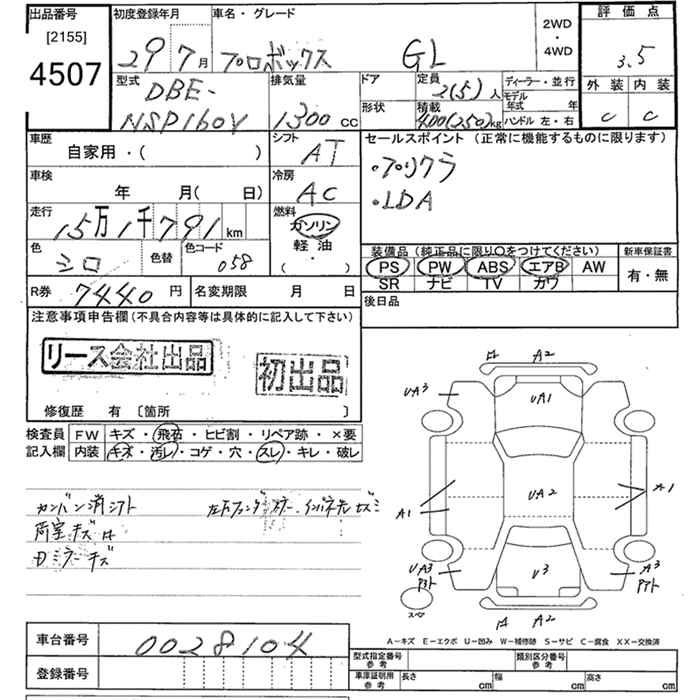 出品番号
[2155]
4507
初度登録年月
29 7月
車名・グレード
プロボックス GL
2WD
・
4WD
評価点
3.5
外装 内装
C C
型式
DBE-
NSP160V
排気量
1300 CC
ドア
形状
定員
2(5)人
積載
400(250)kg
ディーラー・並行
モデル
年式 年
ハンドル 左・右
車歴
自家用・( )
シフト
AT
車検
年 月( 日)
冷房
AC
走行
15万1千791 km
燃料
ガソリン
軽油
( ・ )
色
シロ
色替
色コード
058
R券 7440 円
名変期限 月 日
セールスポイント (正常に機能するものに限ります)
・プリクラ
・LDA
装備品 (純正品に限り○をつけてください)
PS PW ABS エアB AW
SR ナビ TV カワ
新車保証書
有・無
後日品
注意事項申告欄 (不具合内容等は具体的に記入して下さい)
リース会社出品
初出品
修復歴 有 〔箇所 〕
検査員
記入欄
FW キズ・飛石・ヒビ割・リペア跡・×要
内装 キズ・汚レ・コゲ・穴・スレ・キレ・破レ
カンバン消シアト
荷室キズ
Dミラーキズ
A2
UA3
UA1
A1
UA2
A1
UA3
アト
U3
A3
アト
A2
スペア
A－キズ E－エクボ U－凹み W－補修跡 S－サビ C－腐食 XX－交換済
車台番号 0028104
登録番号
型式指定番号
参考
類別区分番号
参考
車庫証明用
参考
長さ cm
幅 cm
高さ cm